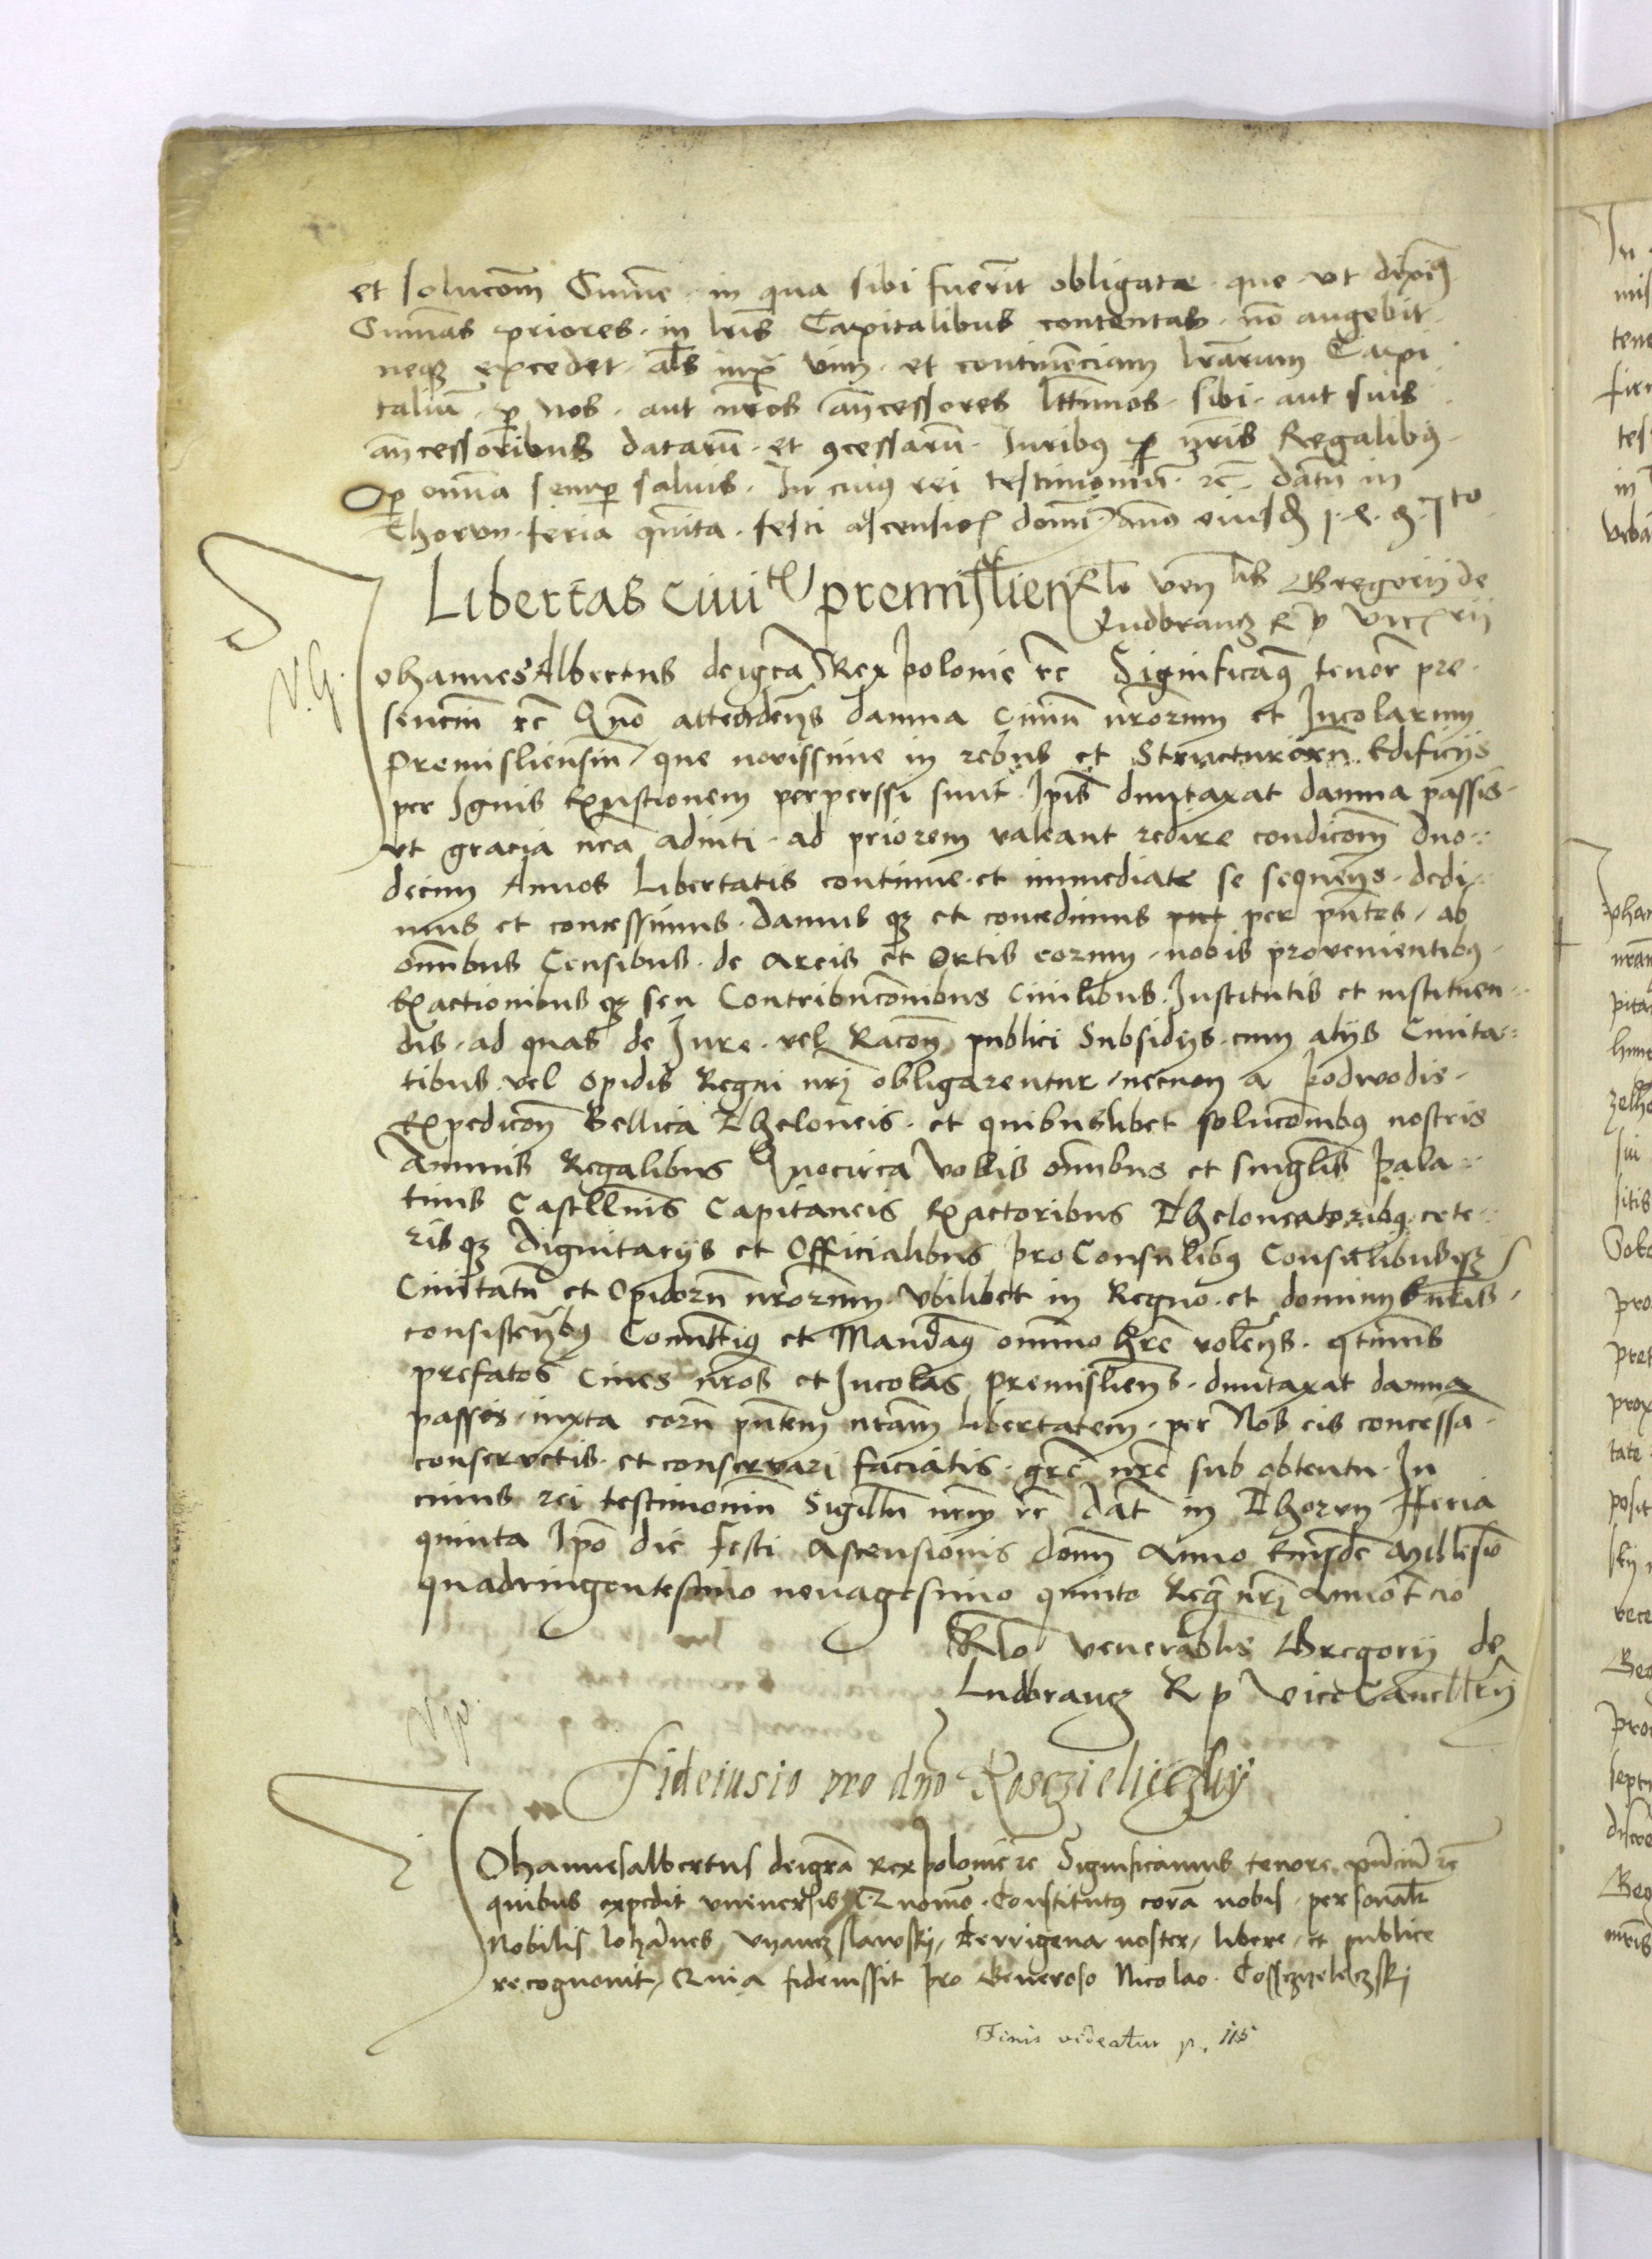 et solucom̄ Sum̄e · in qua sibi fuerit obligata · que · vt dixim9
Sum̄as priores · in lr̄is Capitalibus contentas · nō augebit ·
neq3 excedet · al̄s iux̄ vim · et continenciam lr̄arum Capi
taliū · p nos · aut nr̄os ancessores ltt̄imos · sibi · aut suis
ancessoribus dataru̅ · et 9cessaru̅ · Iurib9 nr̄is Regalib9 ·
p om̄ia semp saluis · In cui9 rei testimoniū · rc̄ datū in
Thorvn · feria quīta · festi ascensio͛ domī anō eiusd̄
Libertas Ciui̅t̅ premislien̄ Rl̄o ven̄ lis Gregorij de
Ludbrancz R p vic͛rij
N. G.
Iohannes Albertus dei gr̄a Rex polonie rc̄ Significam9 tenor̄ pre ·
senciū rc̄ Quō attendentes damna Ciuiū nr̄orum et Incolarum
Premisliensiū / que novissime in rebus et Structurī eorū Edificijs
per Ignis Exustionem perperssi sunt · Ip̄is dumtaxat damna passis ·
vt gracia nr̄a adiuti · ad priorem valeant redire condicom̄ duo ··
decim Annos Libertatis continue · et immediate se sequen̄s · dedi ··
mus et concessimus · damus q3 et concedimus per pn̄tes / ab
om̄ibus Censibus · de areis et Ortis eorum / nobis provenientib9 ·
Exactionibus q3 seu Contribucōnibus Ciuilibus · Institutis et instituen ··
dis · ad quas de Iure · vel Racon̄ publici Subsidijs · cum alijs Ciuita ··
tibus · vel opidis Regni nr̄j obligarentur / necnon a podwodis ·
Expedicon̄ Bellica Theloneis · et quibuslibet solucōnib9 nostris
Annuis Regalibus Quocirca vobis om̄ibus et singul̄is Pala ··
tinis Castll̄nis Capitaneis Exactoribus Theloneatorib9 · cete ··
ris q3 dignitarijs et Officialibus proConsulib9 Consulibusq3
Ciuitatū et Opidorū nr̄orum · vbilibet in Regno · et dominijs nr̄is ·
consisten̄b9 Comittim9 et Mandam9 omnino hr̄e volen̄s · qtinus
prefatos Ciues nr̄os et Incolas Premislien̄s · dumtaxat damna
passos / iuxta eorū pn̄tem nr̄am libertatem · per Nos eis concessā ·
conseruetis · et conseruari faciatis · gr̄e nr̄e sub obtentu · In
cuius rei testimoniū Sigillū nr̄m rc̄ dat̄ in Thorvn Feria
quinta Ip̄o die Festi Ascensionis domī Anno Eiusdē Millesīo
quadringentesimo nonagesimo quinto Regn̄ nr̄j Anno t̄cio
Rl̄o venerabilis Gregorij de
Ludbrancz R p ViceCancellr̄ij
Fideiusio pro dn̄o Kosczieliyczky
IOhannes albertus dei gr̄a Rex polonie rc̄ Significamus tenore pn̄ciū rc̄
quibus expedit vniuersis Quomō · Constitut9 corā nobis · personalr̄
Nobilis Ioha̅nes Vnanczslawsky / Terrigena noster / libere / et publice
recognouit / Quia fideiussit pro Generoso Nicolao · Cossczyeleczskj
Finis videatur p. 115